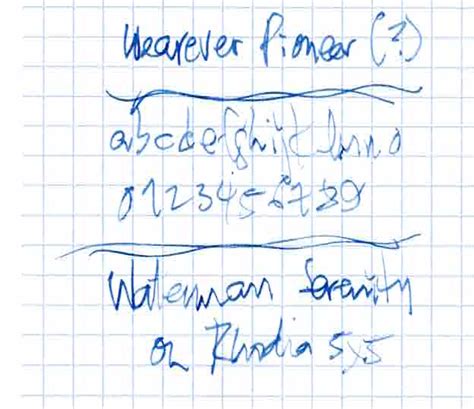 Wearever Pioneer (?)
abcdefghijklmno
0123456789
Waterman Serenity
on Rhodia 5x5